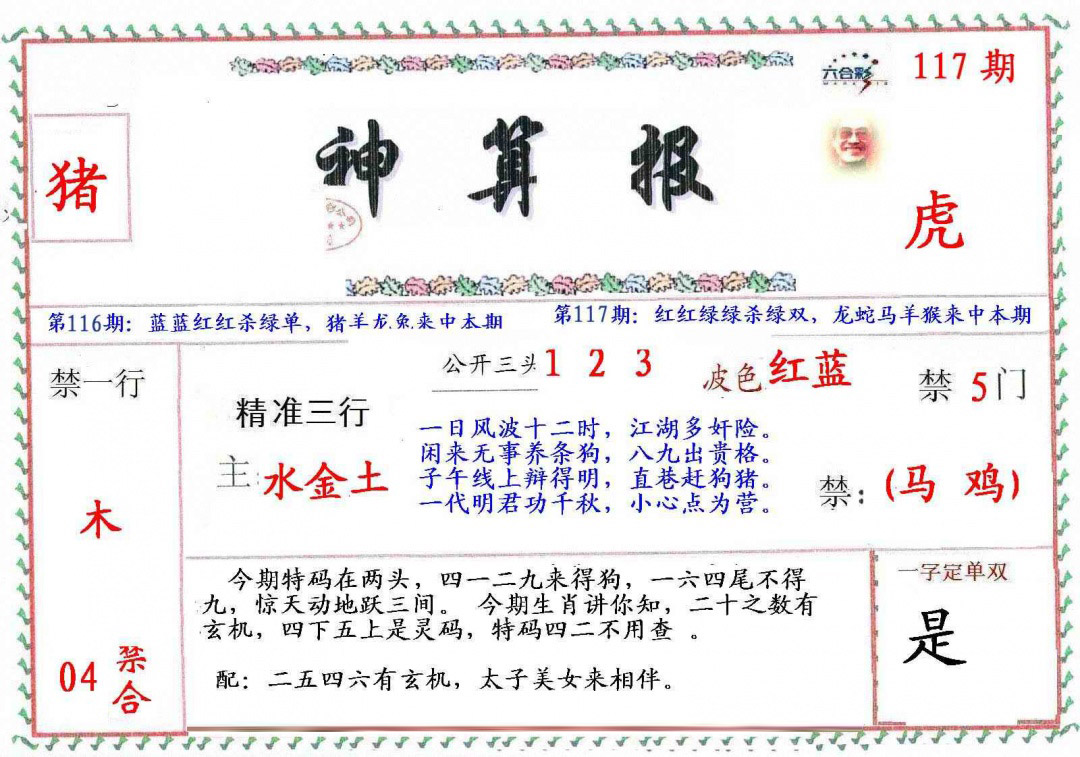 六合彩
117期
神算报
猪
虎
第116期：蓝蓝红红杀绿单，猪羊龙兔来中本期
第117期：红红绿绿杀绿双，龙蛇马羊猴来中本期
禁一行
木
04 禁合
精准三行
主：水金土
公开三头 1 2 3
波色 红蓝
一日风波十二时，江湖多奸险。
闲来无事养条狗，八九出贵格。
子午线上辩得明，直巷赶狗猪。
一代明君功千秋，小心点为营。
禁5门
禁：（马 鸡）
今期特码在两头，四一二九来得狗，一六四尾不得
九，惊天动地跃三间。 今期生肖讲你知，二十之数有
玄机，四下五上是灵码，特码四二不用查 。
配：二五四六有玄机，太子美女来相伴。
一字定单双
是